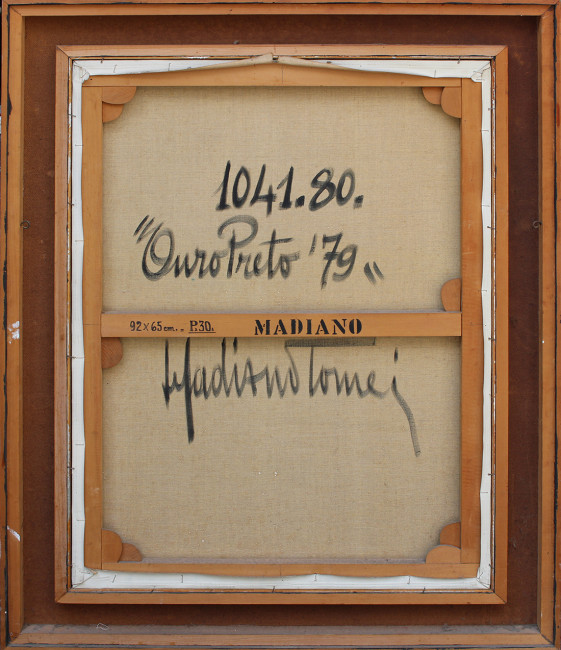 1041.80.
"Ouro Preto '79"
92 x 65 cm. - P.30. MADIANO
Madiano Tomei